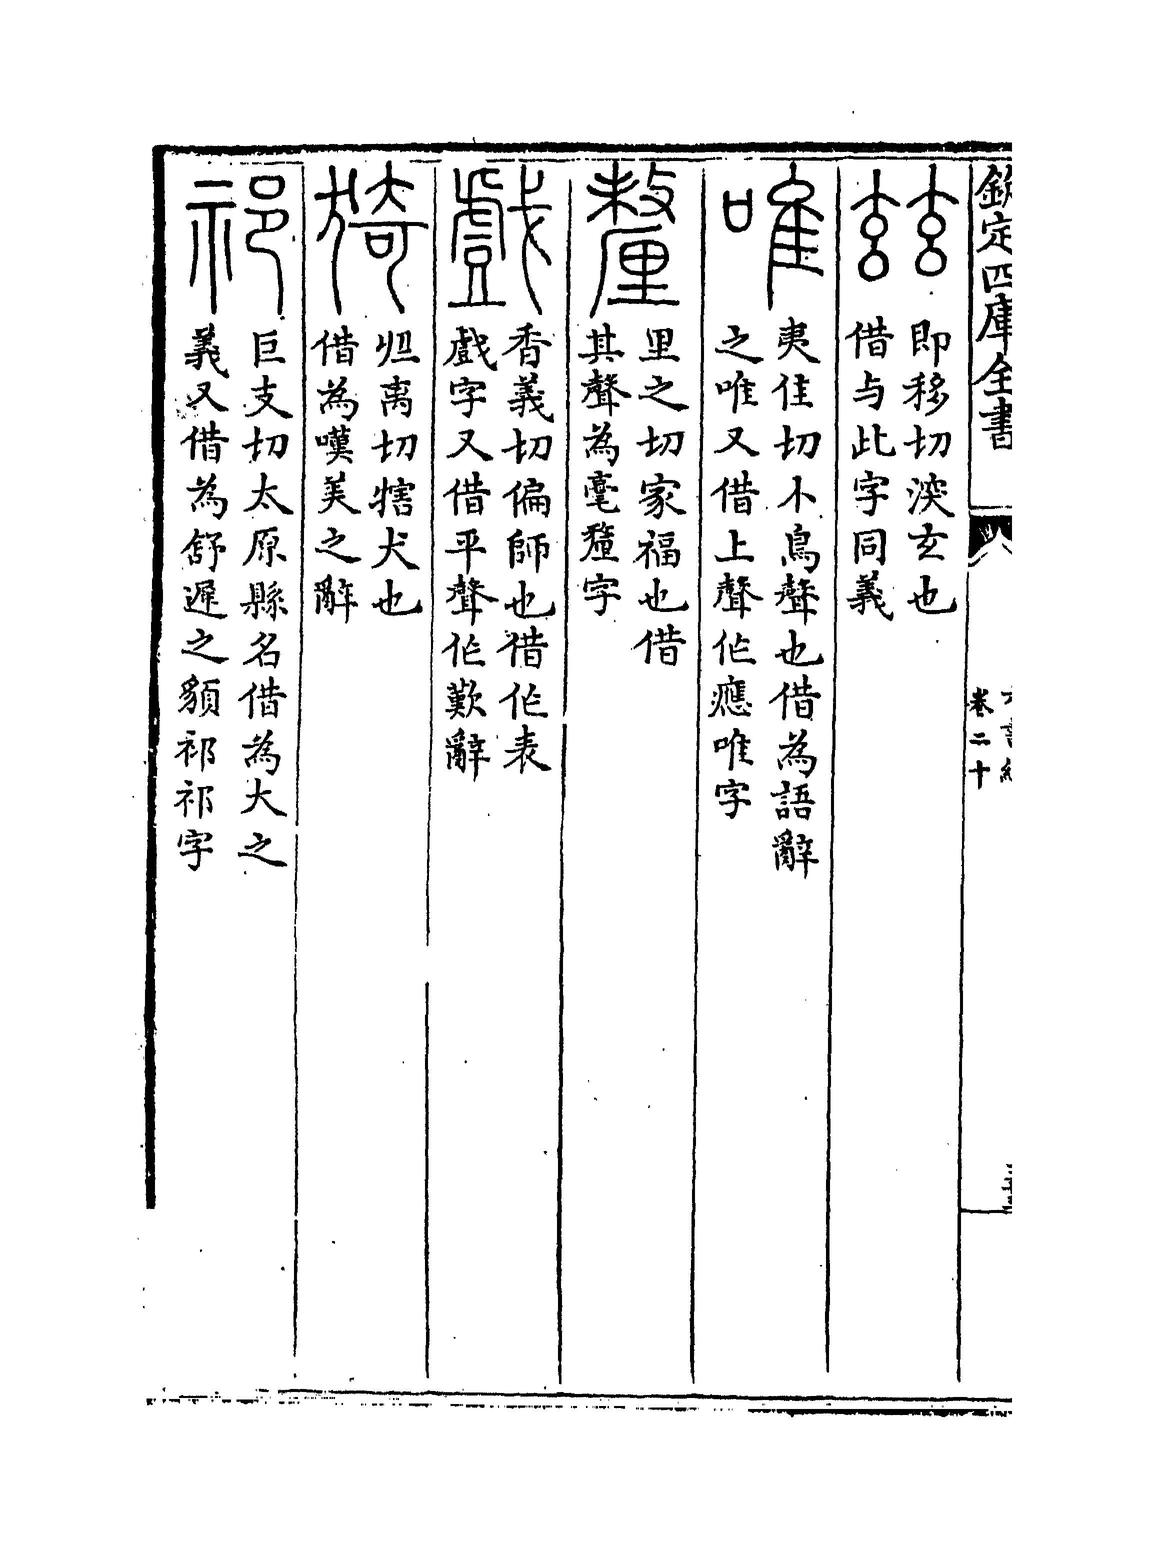 欽定四庫全書
卷二十
玆
即移切深玄也
借与此字同義
唯
夷佳切小鳥聲也借為語辭
之唯又借上聲作應唯字
釐
里之切家福也借
其聲為毫釐字
戲
香義切偏師也借作表
戲字又借平聲作歎辭
猗
离切犗犬也
借為嘆美之辭
祁
巨支切太原縣名借為大之
義又借為舒遲之貌祁祁字